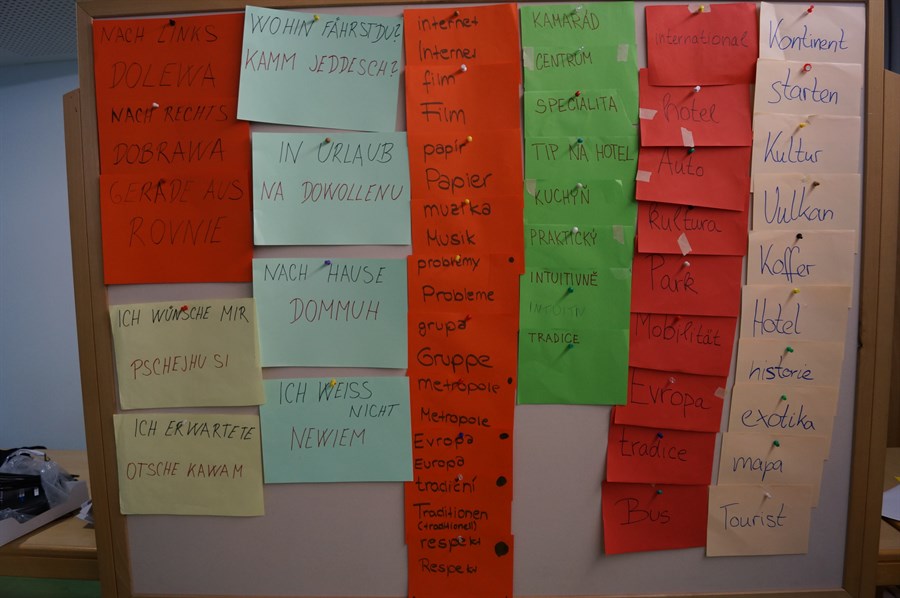 NACH LINKS
DOLEWA
NACH RECHTS
DOBRAWA
GERADE AUS
ROVNIE
ICH WÜNSCHE MIR
PSCHEJHU SI
ICH ERWARTETE
OTSCHE KAWAM
WOHIN FÄHRST DU?
KAMM JEDDESCH?
IN URLAUB
NA DOWOLLENU
NACH HAUSE
DOMMUH
ICH WEISS
NICHT
NEWIEM
internet
Internet
film
Film
papír
Papier
muzika
Musik
problemy
Probleme
grupa
Gruppe
metropole
Metropole
Evropa
Europa
tradiční
Traditionen
(traditionell)
respekt
Respekt
KAMARÁD
CENTRUM
SPECIALITA
TIP NA HOTEL
KUCHYŇ
PRAKTICKÝ
INTUITIVNĚ
INTUITIV
TRADICE
international
Hotel
Auto
Kultura
Park
Mobilität
Evropa
tradice
Bus
Kontinent
starten
Kultur
Vulkan
Koffer
Hotel
historie
exotika
mapa
Tourist